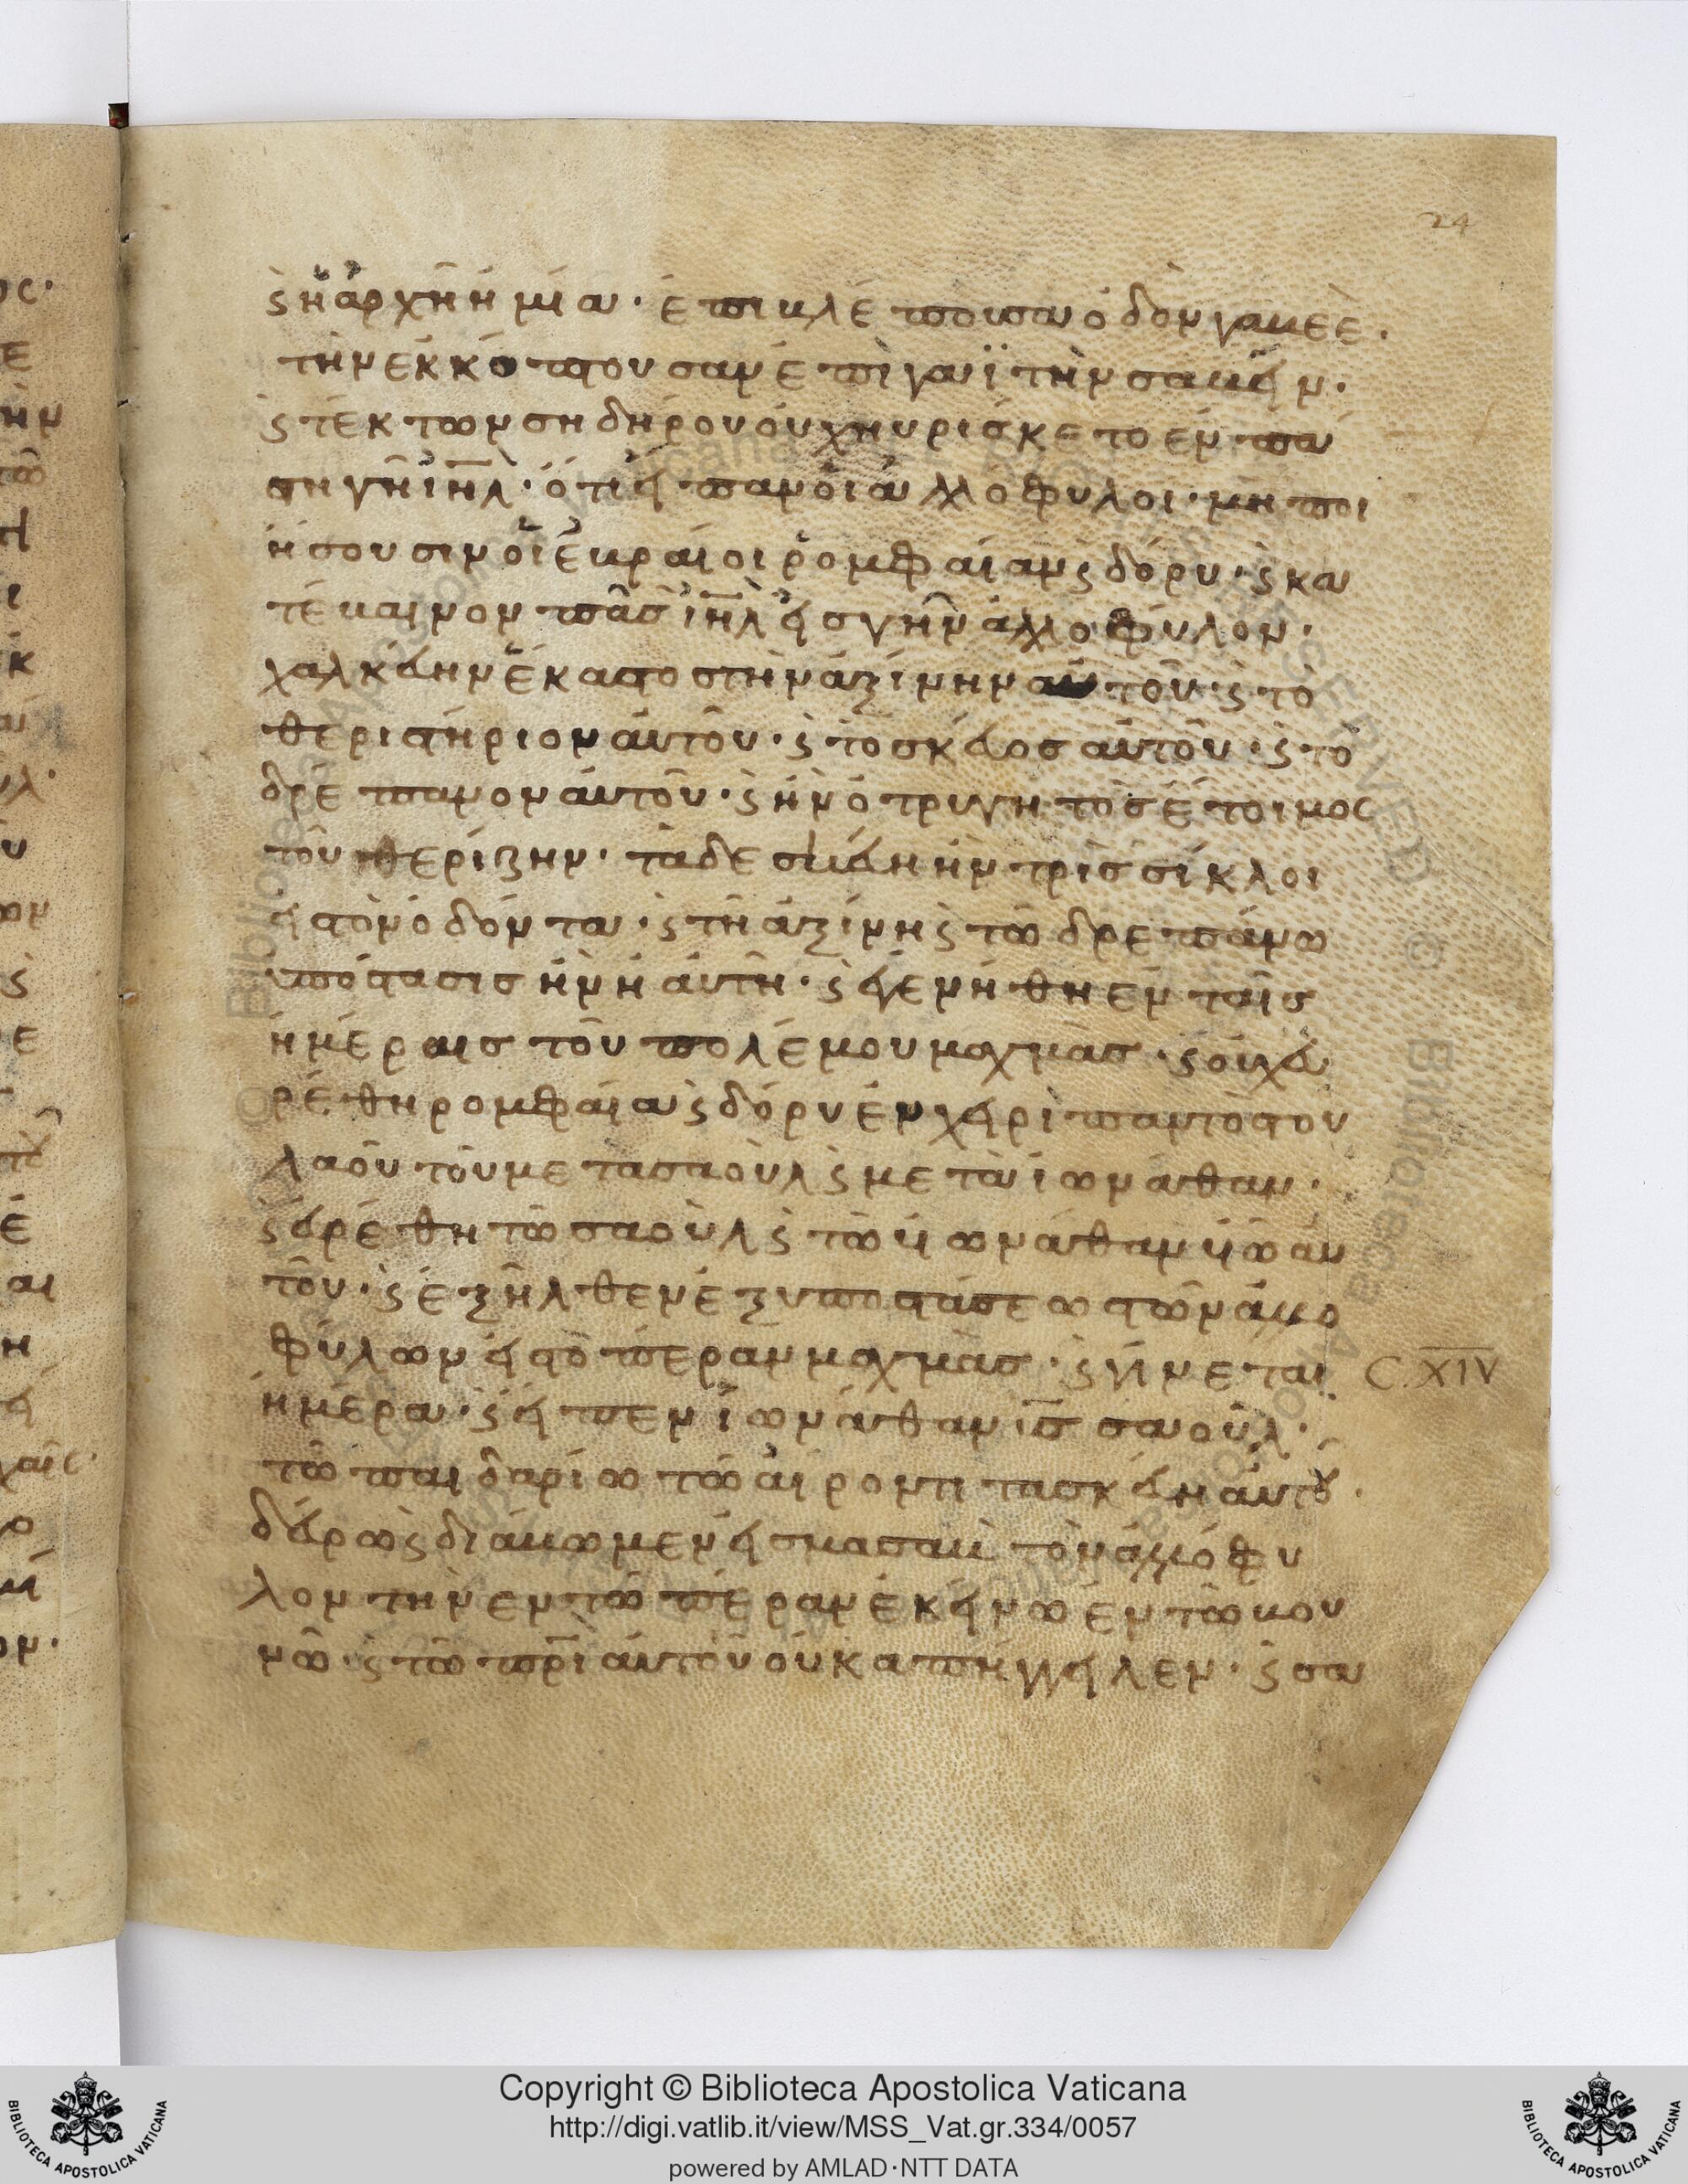 24
ϛ ἡ ἀρχὴ ἡ μία · ἐπιβλέπουσα ὁδὸν γαβεὲ ·
τὴν ἐκκόπτουσαν ἐπὶ γαῒ τὴν σαβήν ·
ϛ τέκτων σηδήρου οὐχ ηυρίσκετο ἐν πά
ση γῆ ἰηλ · ὅτι εἶπαν οἱ ἀλλόφυλοι · μὴ ποι
ήσουσιν οἱ ἑβραίοι ρομφαίαν ϛ δόρυ · ϛ κα
τέβαινον πᾶς ἰηλ εἰς γῆν ἀλλοφύλον ·
χαλκεύην ἕκαστος τὴν ἀξίνην αὐτοῦ · ϛ τὸ
θεριστήριον ἀυτοῦ · ϛ τὸ σκεύος ἀυτοῦ · ϛ τὸ
δρέπανον ἀυτοῦ · ϛ ἦν ὁ τρυγητὸς ἕτοιμος
τοῦ θερίζην · τὰ δε σκεύη ἦν τρὶς σίκλοι
εἰς τὸν ὀδόντα · ϛ τῆ ἀξίνη ϛ τῶ δρεπάνω
ὑπόστασις ἦν ἡ ἀυτὴ · ϛ ἐγενήθη ἐν ταῖς
ἡμέραις τοῦ πολέμου μαχμὰς · ϛ οὐχ εὑ
ρέθη ρομφαία ϛ δόρυ ἐν χειρὶ παντὸς του
λαοῦ τοῦ μετα σαοὺλ ϛ μετὰ ἰωνάθαν ·
ϛ εὑρέθη τῶ σαοὺλ ϛ τῶ ἰωνάθαν υἱῶ ἀυ
τοῦ · ϛ ἐξῆλθεν ἐξ υποστάσεως τῶν ἀλλο
φύλων εἰς τὸ πέραν μαχμὰς · ϛ γίνεται C. XIV
ἡμέρα · ϛ εἶπεν ἰωνάθαν υσ σαοῦλ ·
τῶ παιδαρίω τῶ ἀίροντι τα σκεύη ἀυτοῦ ·
δεύρω ϛ διάβωμεν εἰς μασαβ τὸν ἀλλοφύ
λον τὴν εν τῶ πέραν ἐκείνω ἐν τῶ βου
νῶ · ϛ τῶ πρὶ ἀυτοῦ οὐκ ἀπήγγειλεν · ϛ σα
Copyright © Biblioteca Apostolica Vaticana
http://digi.vatlib.it/view/MSS_Vat.gr.334/0057
powered by AMLAD·NTT DATA
BIBLIOTECA APOSTOLICA VATICANA
BIBLIOTECA APOSTOLICA VATICANA